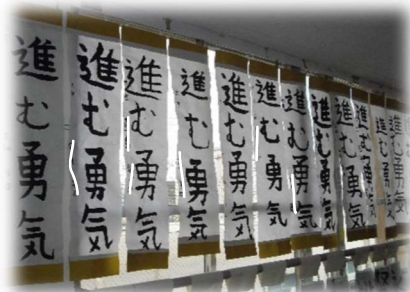 進む勇気
進む勇気
進む勇気
進む勇気
進む勇気
進む勇気
進む勇気
進む勇気
進む勇気
進む勇気
進む勇気
進む勇気